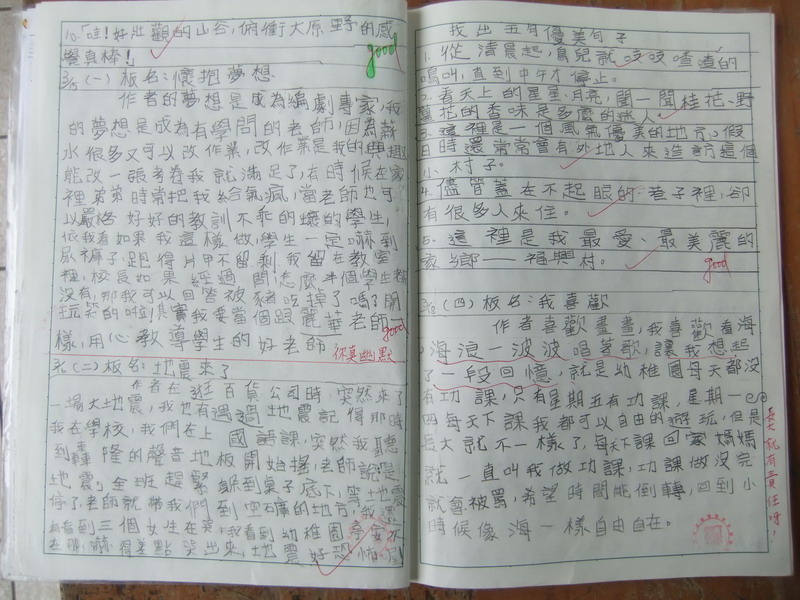 10.「哇!好壯觀的山谷,俯衝大原野的感
覺真棒!」
good
3/5(一)板名:懷抱夢想
作者的夢想是成為編劇專家,我
的夢想是成為有學問的老師,因為薪
水很多又可以改作業,改作業是我的興趣
能改一張考卷我就滿足了,有時候在家
裡弟弟時常把我給氣瘋,當老師也可
以嚴格好好的教訓不乖的壞的學生,
依我看如果我這樣做,學生一定嚇到
尿褲子,跑得片甲不留剩我留在教室
裡,校長如果經過問怎麼半個學生都
沒有,那我可以回答被豬吃掉了嗎?開
玩笑的啦!其實我要當個跟麗華老師一
樣,用心教導學生的好老師
good
你真幽默
(二)板名:地震來了
作者在逛百貨公司時,突然來了
一場大地震,我也有遇過地震記得那時
我在學校,我們在上國語課,突然我聽
到轟隆的聲音地板開始搖,老師說是
地震」全班趕緊躲到桌子底下,等地震
停了,老師就帶我們到空曠的地方,我還
看到三個女生在哭,我看到幼稚園
哭出來,地震好恐怖
找出五有優美句子
1.從清晨起,鳥兒就咬咬喳喳的
鳴叫,直到中午才停止。
2.看天上的星星、月亮,聞一聞桂花、野
薑花的香味是多麼的迷人。
3.這裡是一個風氣優美的地方,假
日時還常常會有外地人來造訪這個
小村子。
4.儘管蓋在不起眼的巷子裡,卻
有很多人來住。
5.這裡是我最愛、最美麗的
家鄉——福興村。
good
(四)板名:我喜歡
作者喜歡畫畫,我喜歡看海
海浪一波波唱著歌,讓我想起
了一段回憶,就是幼稚園每天都沒
有功課,只有星期五有功課,星期一~
四每天下課我都可以自由的遊玩,但是
長大就不一樣了,每天下課回家媽媽
就一直叫我做功課,功課做沒完
就會被罵,希望時間能倒轉,回到小
時候像海一樣自由自在。
長大就有責任呀!